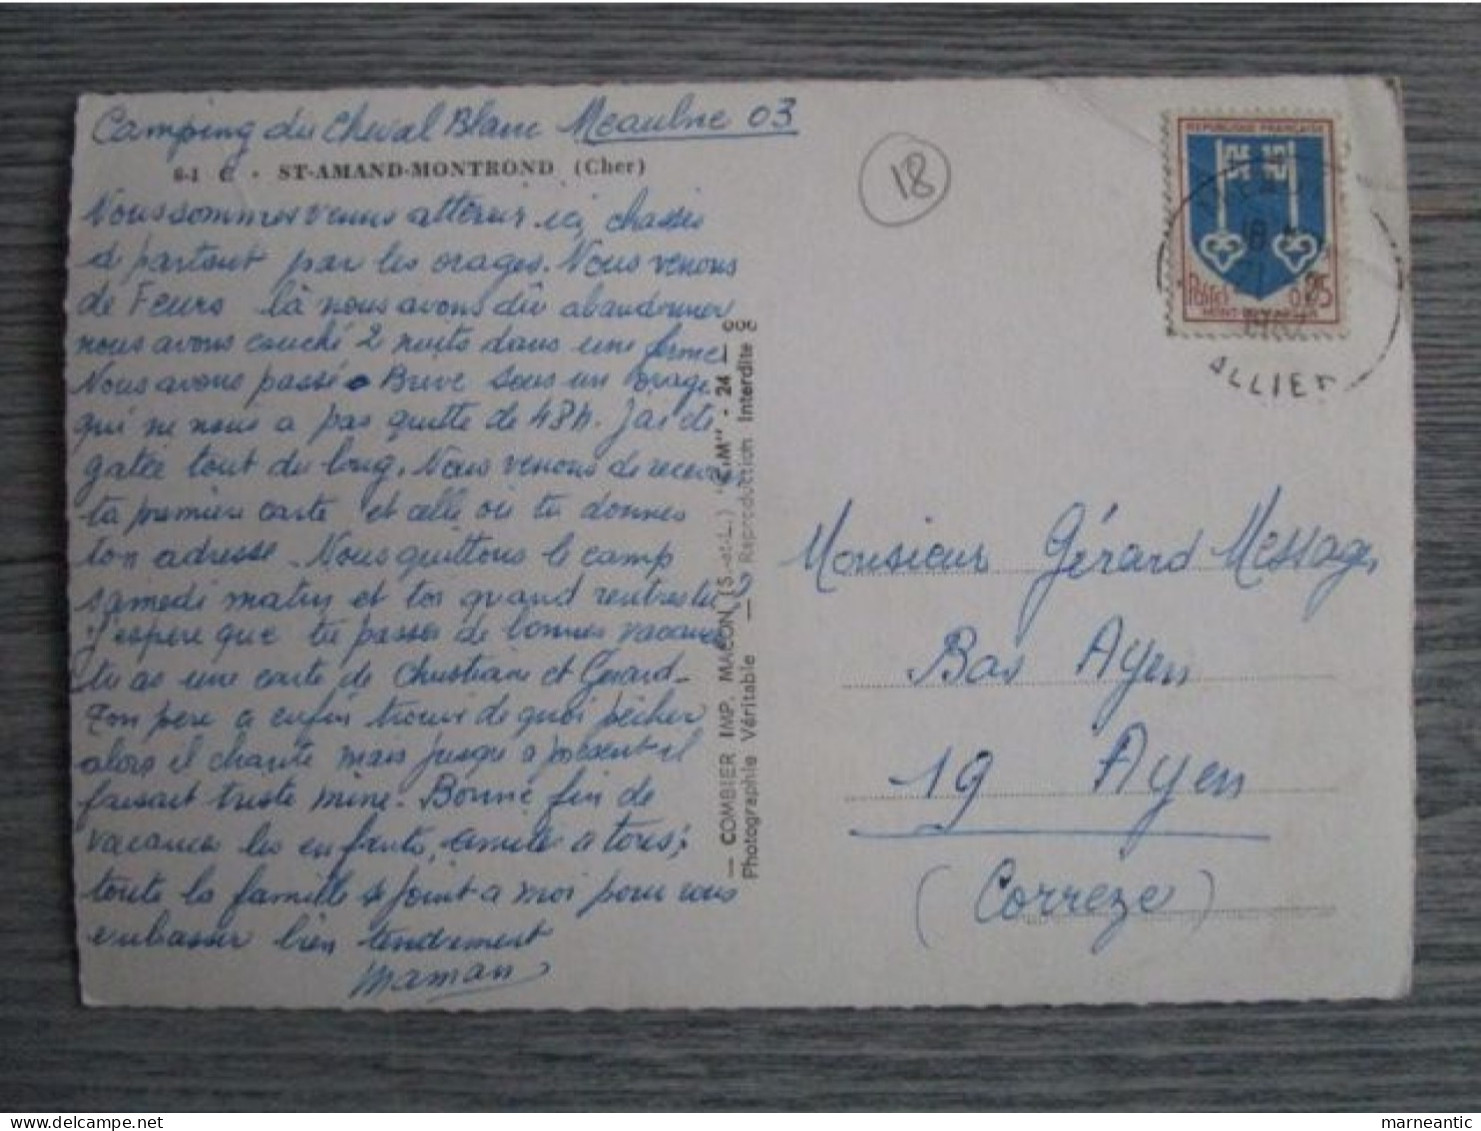 Camping du Cheval Blanc Meaulne 03
6-1 C - ST-AMAND-MONTROND (Cher)
Nous sommes venus attérir ici, chassés
de partout par les orages. Nous venons
de Feurs là nous avons dû abandonner
nous avons couché 2 nuits dans une ferme
Nous avons passé Brive sous un orage
qui ne nous a pas quitté de 48h. J'ai été
gatée tout du long. Nous venons de recevoir
ta première carte et celle où tu donnes
ton adresse. Nous quittons le camp
samedi matin et toi quand rentres tu ?
J'espère que tu passes de bonnes vacances
tu as une carte de Christiane et Gérard.
Ton père a enfin trouvé de quoi pêcher
alors il chante mais jusque a présent il
faisait triste mine. Bonne fin de
vacances les enfants, amitiés a tous;
toute la famille se joint a moi pour vous
embasser bien tendrement
Maman
— COMBIER IMP. MACON (S.-et-L.) "CIM" - 24 — 000
Photographie Véritable — Reproduction Interdite
18
REPUBLIQUE FRANÇAISE
Postes 0,25
MONT-DE-MARSAN
18
ALLIER
Monsieur Gérard Message,
Bas Ayen
19 Ayen
(Corrèze)
marneantic